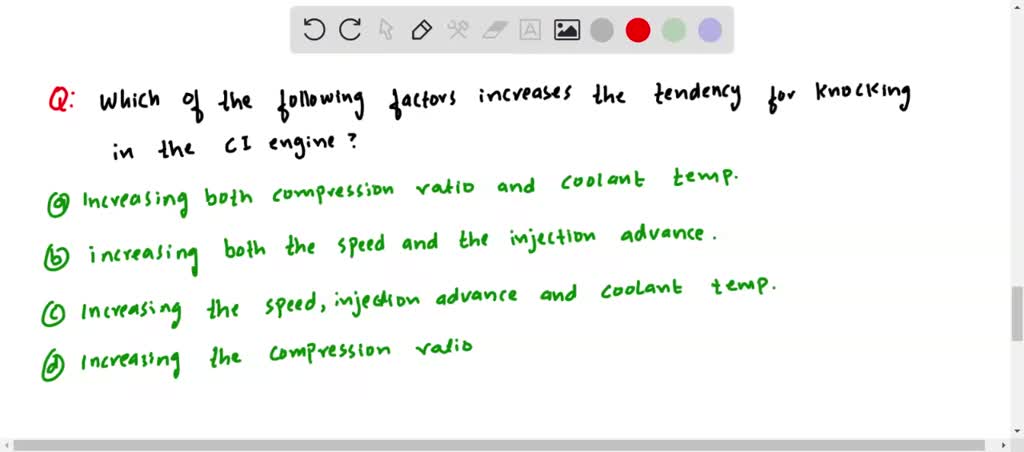 Q: Which of the following factors increases the tendency for knocking
in the CI engine?
(a) Increasing both compression ratio and coolant temp.
(b) increasing both the speed and the injection advance.
(c) Increasing the speed, injection advance and coolant temp.
(d) Increasing the compression ratio